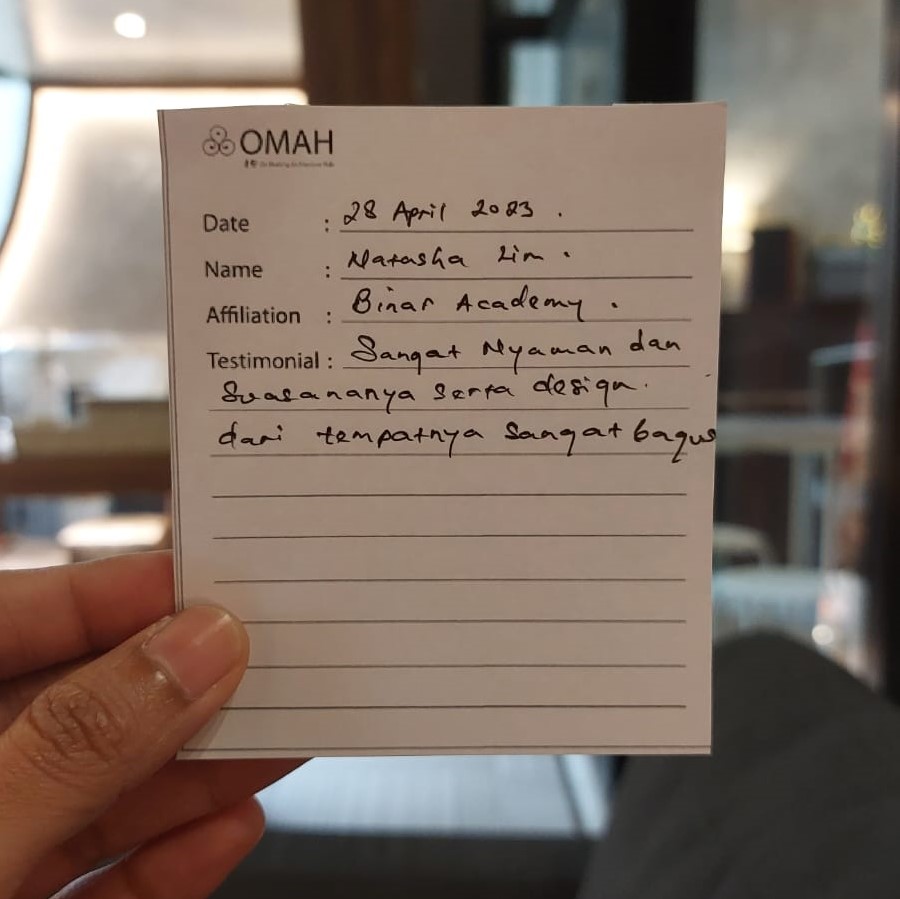 OMAH
Date : 28 April 2023 .
Name : Natasha Lim .
Affiliation : Binar Academy .
Testimonial : Sangat Nyaman dan
Suasananya serta design.
dari tempatnya sangat bagus